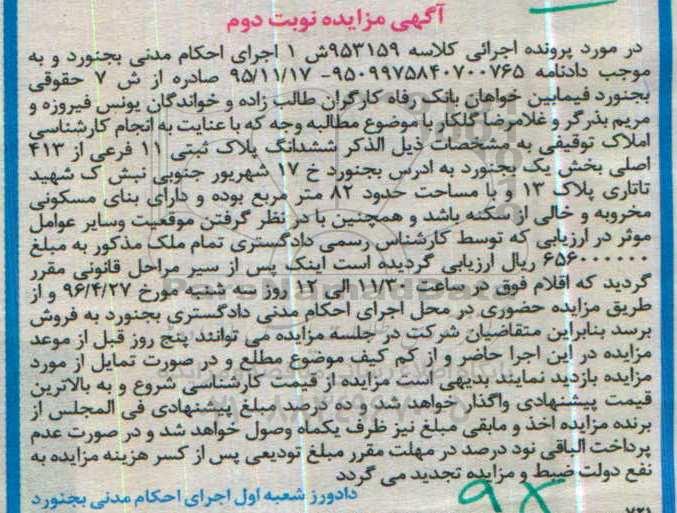 آگهی مزایده نوبت دوم
در مورد پرونده اجرائی کلاسه ۹۵۳۱۵۹ش ۱ اجرای احکام مدنی بجنورد و به
موجب دادنامه ۹۵۰۹۹۷۵۸۴۰۷۰۰۷۶۵- ۹۵/۱۱/۱۷ صادره از ش ۷ حقوقی
بجنورد فیمابین خواهان بانک رفاه کارگران طالب زاده و خواندگان یونس فیروزه و
مریم بذرگر و غلامرضا گلکار با موضوع مطالبه وجه که با عنایت به انجام کارشناسی
املاک توقیفی به مشخصات ذیل الذکر ششدانگ پلاک ثبتی ۱۱ فرعی از ۴۱۳
اصلی بخش یک بجنورد به ادرس بجنورد خ ۱۷ شهریور جنوبی نبش ک شهید
تاتاری پلاک ۱۳ و با مساحت حدود ۸۲ متر مربع بوده و دارای بنای مسکونی
مخروبه و خالی از سکنه باشد و همچنین با در نظر گرفتن موقعیت وسایر عوامل
موثر در ارزیابی که توسط کارشناس رسمی دادگستری تمام ملک مذکور به مبلغ
۶۵۶۰۰۰۰۰۰ ریال ارزیابی گردیده است اینک پس از سیر مراحل قانونی مقرر
گردید که اقلام فوق در ساعت ۱۱/۳۰ الی ۱۲ روز سه شنبه مورخ ۹۶/۴/۲۷ و از
طریق مزایده حضوری در محل اجرای احکام مدنی دادگستری بجنورد به فروش
برسد بنابراین متقاضیان شرکت در جلسه مزایده می توانند پنج روز قبل از موعد
مزایده در این اجرا حاضر و از کم کیف موضوع مطلع و در صورت تمایل از مورد
مزایده بازدید نمایند بدیهی است مزایده از قیمت کارشناسی شروع و به بالاترین
قیمت پیشنهادی واگذار خواهد شد و ده درصد مبلغ پیشنهادی فی المجلس از
برنده مزایده اخذ و مابقی مبلغ نیز ظرف یکماه وصول خواهد شد و در صورت عدم
پرداخت الباقی نود درصد در مهلت مقرر مبلغ تودیعی پس از کسر هزینه مزایده به
نفع دولت ضبط و مزایده تجدید می گردد
دادورز شعبه اول اجرای احکام مدنی بجنورد